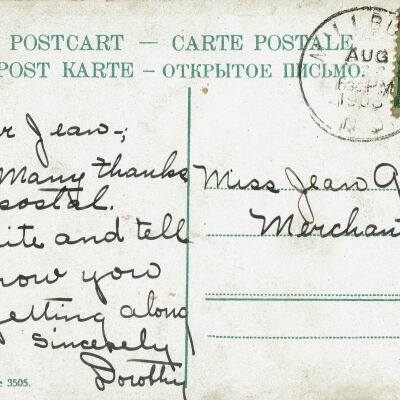 POSTCART — CARTE POSTALE
POST KARTE – ОТКРЫТОЕ ПИСЬМО.
AUG
PM
r Jean-;
Many thanks
postal.
ite and tell
how you
getting along
Sincerely
Dorothy
Miss Jean
Merchan
e 3505.